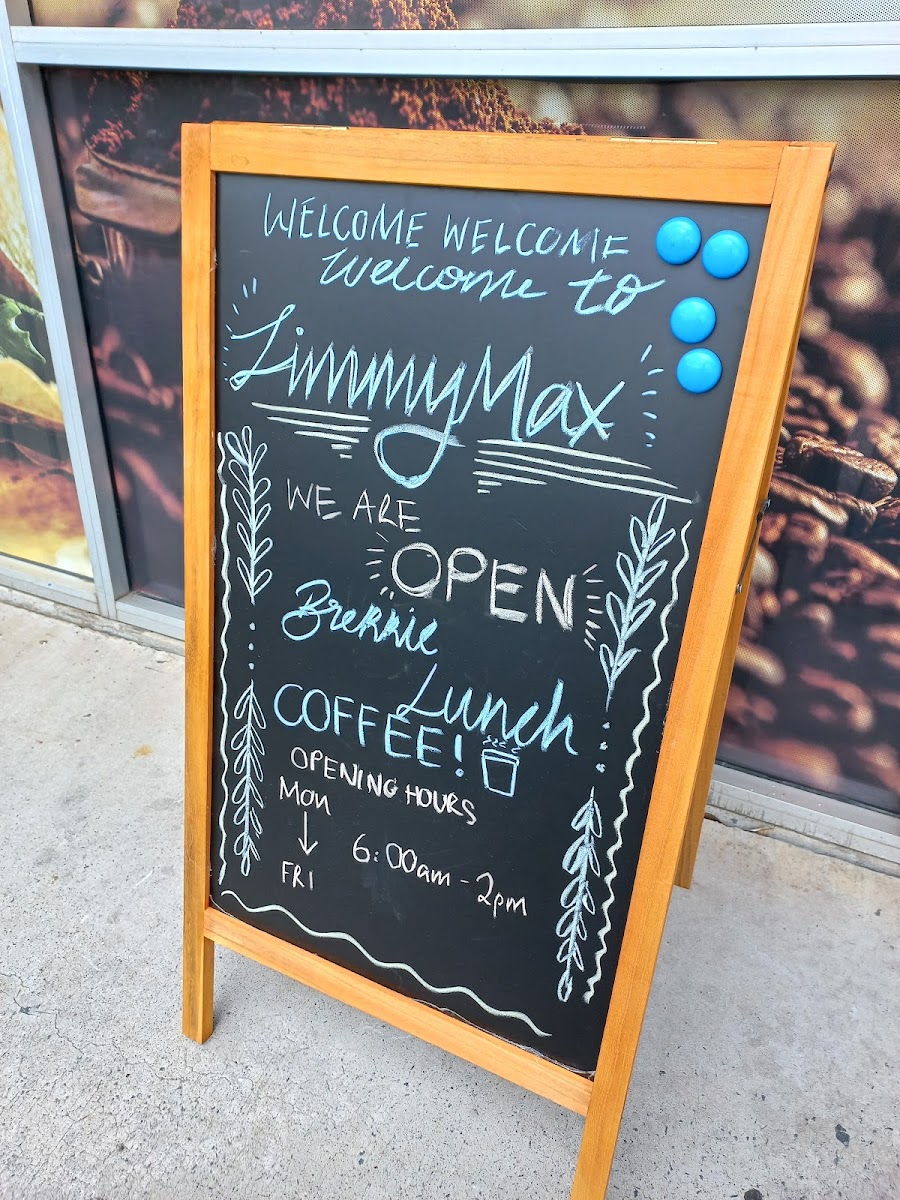 WELCOME WELCOME
Welcome to
JimmyMax
WE ARE
OPEN
Brekkie
Lunch
COFFEE!
OPENING HOURS
Mon
↓
FRI
6:00am - 2pm